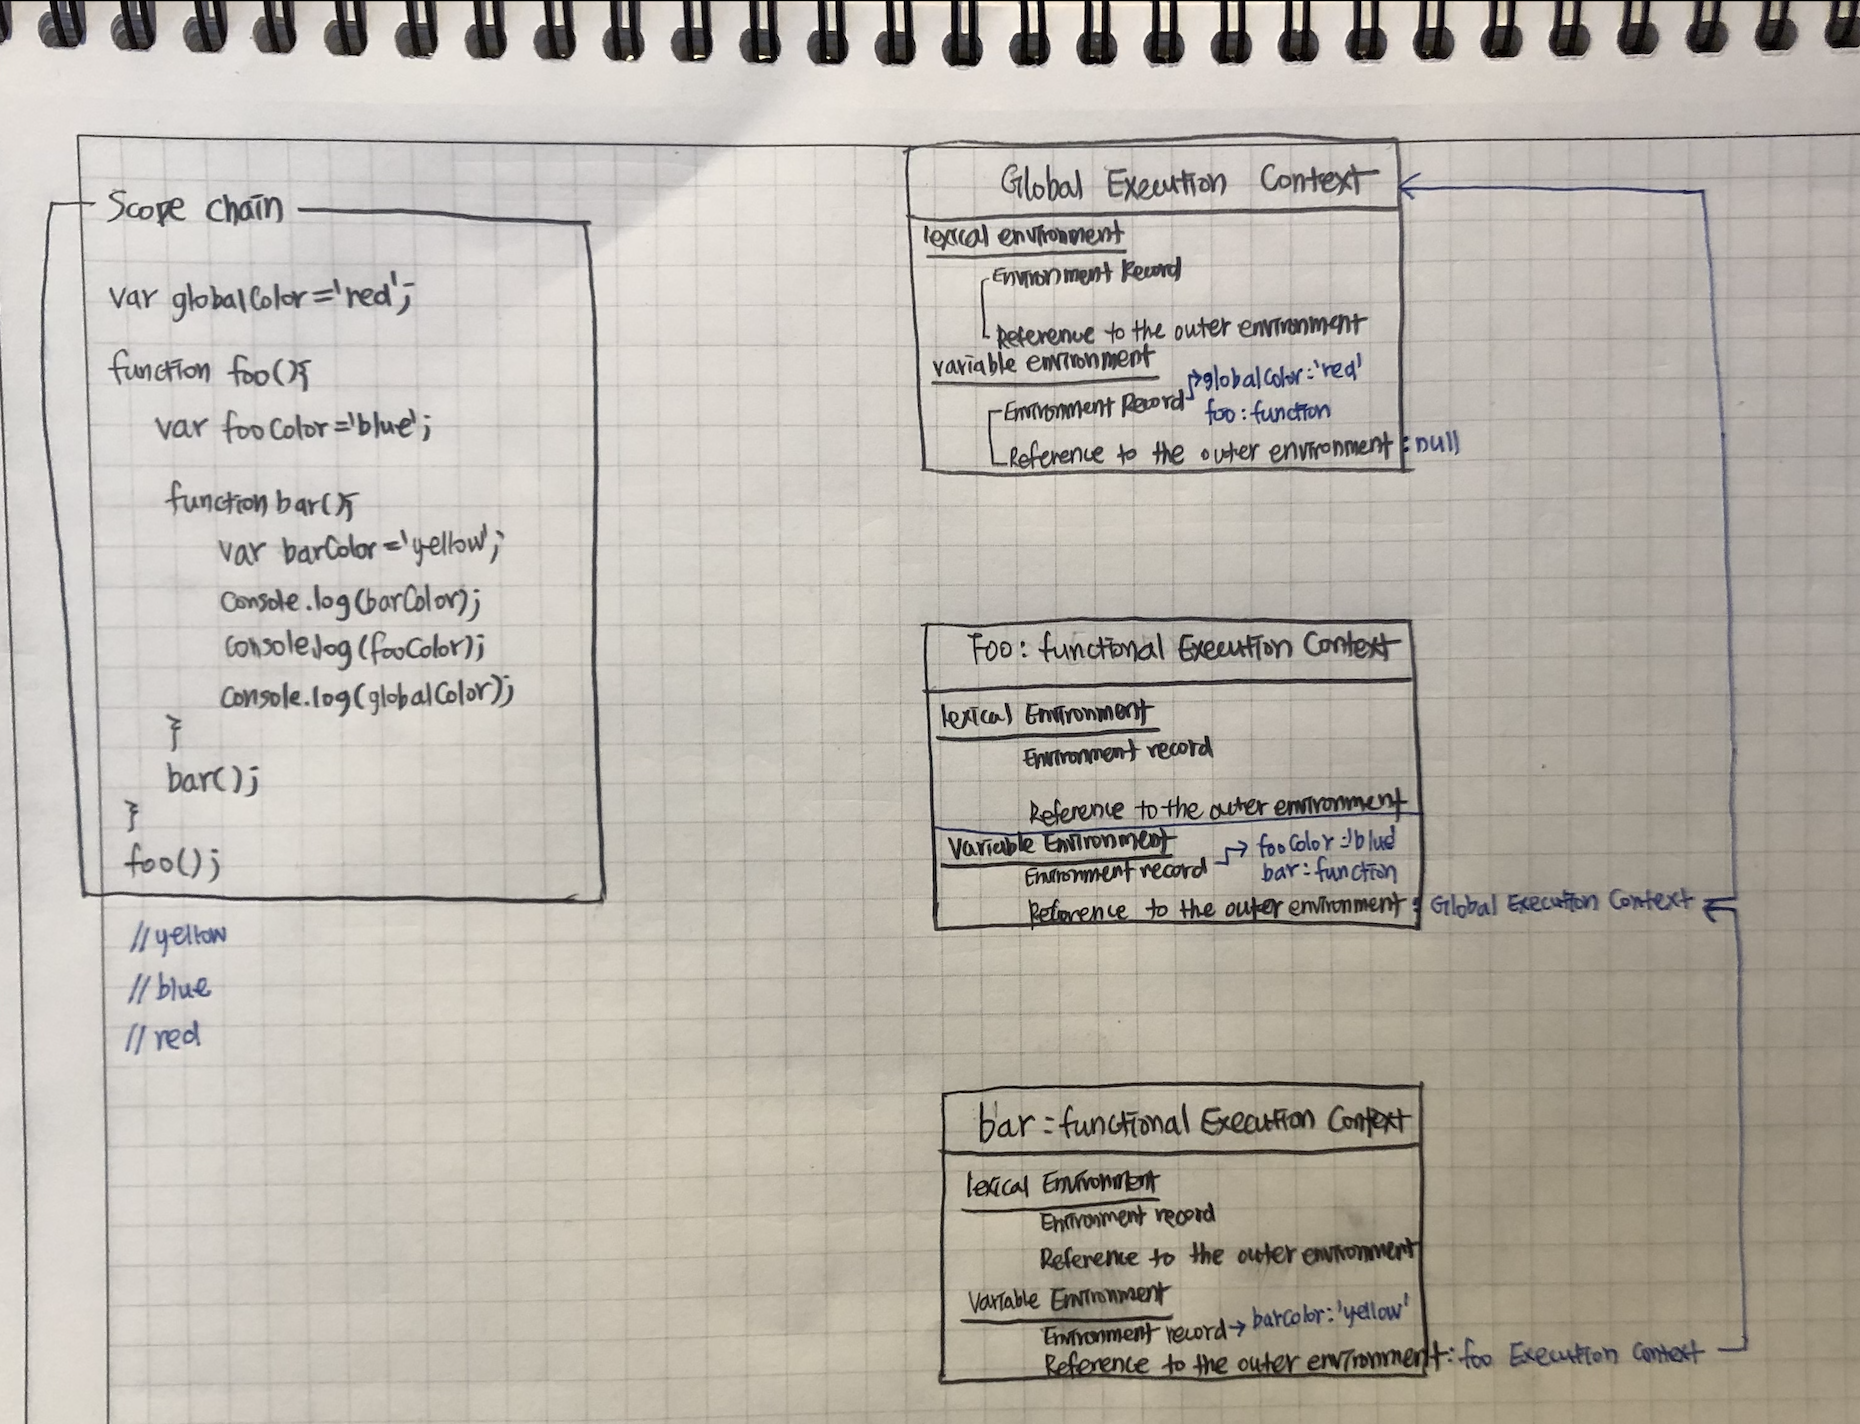 Scope chain
var globalColor='red';
function foo(){
var fooColor='blue';
function bar(){
var barColor='yellow';
console.log(barColor);
console.log(fooColor);
console.log(globalColor);
}
bar();
}
foo();
//yellow
//blue
//red
Global Execution Context
lexical environment
Environment Record
Reference to the outer environment
variable environment
globalColor:'red'
Environment Record
foo:function
Reference to the outer environment : null
Foo: functional Execution Context
lexical Environment
Environment record
Reference to the outer environment
Variable Environment
fooColor:'blue'
Environment record
bar:function
Reference to the outer environment : Global Execution Context
bar:functional Execution Context
lexical Environment
Environment record
Reference to the outer environment
Variable Environment
Environment record → barcolor:'yellow'
Reference to the outer environment: foo Execution Context